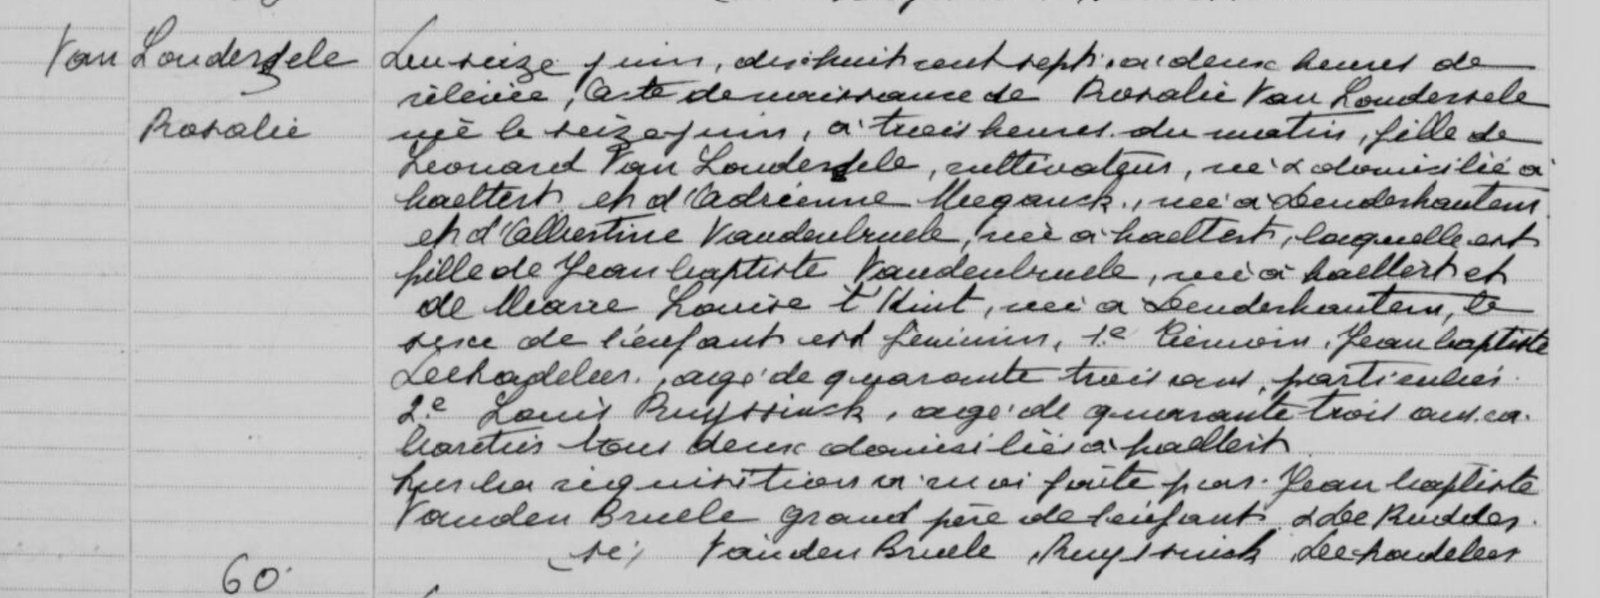 Van Londersele
Rosalie
Du seize juin, dix huit cent sept, à deux heures de
rélevée, Acte de naissance de Rosalie Van Londersele
née le seize juin, à trois heures du matin, fille de
Léonard Van Londersele, cultivateur, né & domicilié à
haeltert et d'Adrienne Meganck, née à Denderhautem
et d'Albertine Vandenbruele, née à haeltert, laquelle est
fille de Jean baptiste Vandenbruele, né à haeltert et
de Marie Louise t'Kint, née à Denderhautem, le
sexe de l'enfant est féminin, 1.e témoin, Jean baptiste
agé de quarante trois ans, particulier
2.e Louis Ruyssinck, agé de quarante trois ans, ca-
baretier tous deux domiciliés à haeltert
Sur la réquisition à moi faite par Jean baptiste
Vanden Bruele grand père de l'enfant & De Rudder
(sé) Vanden Bruele, Ruyssinck
60